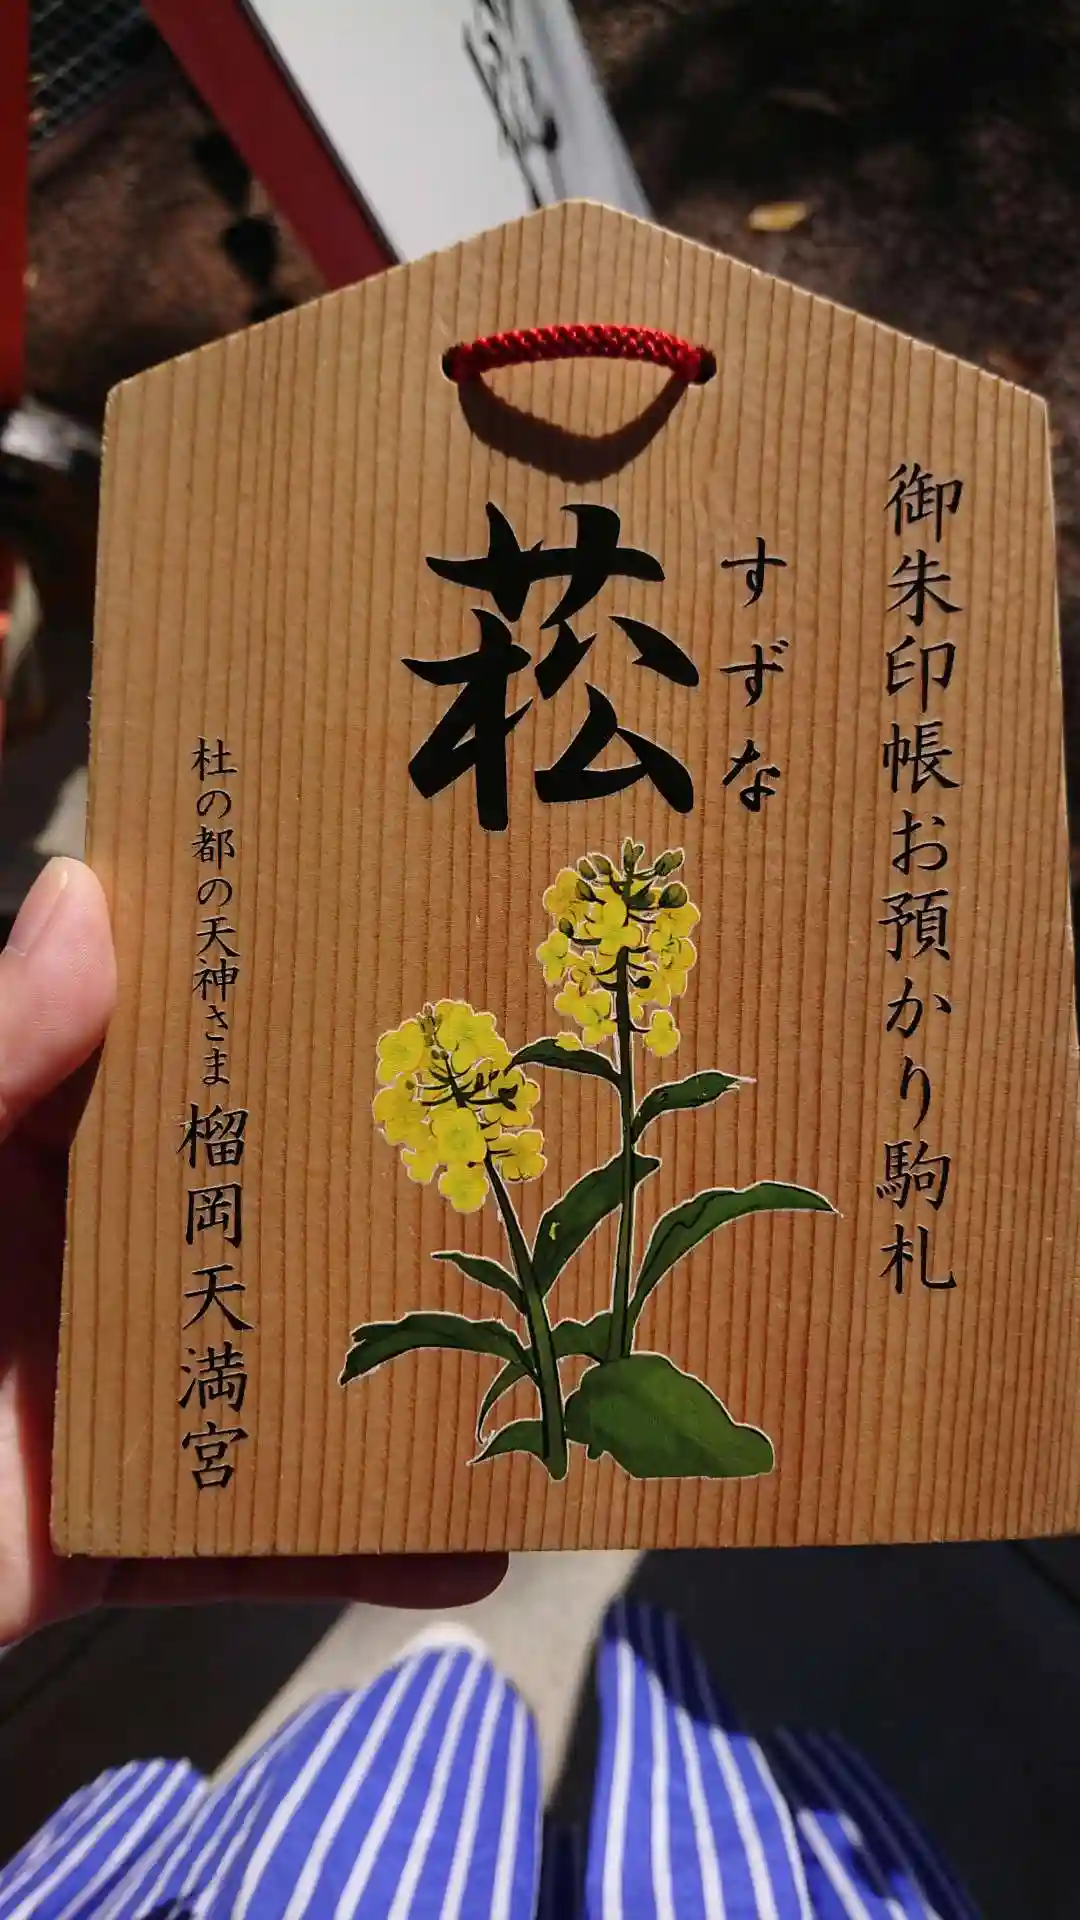 御朱印帳お預かり駒札
すずな
菘
杜の都の天神さま 榴岡天満宮